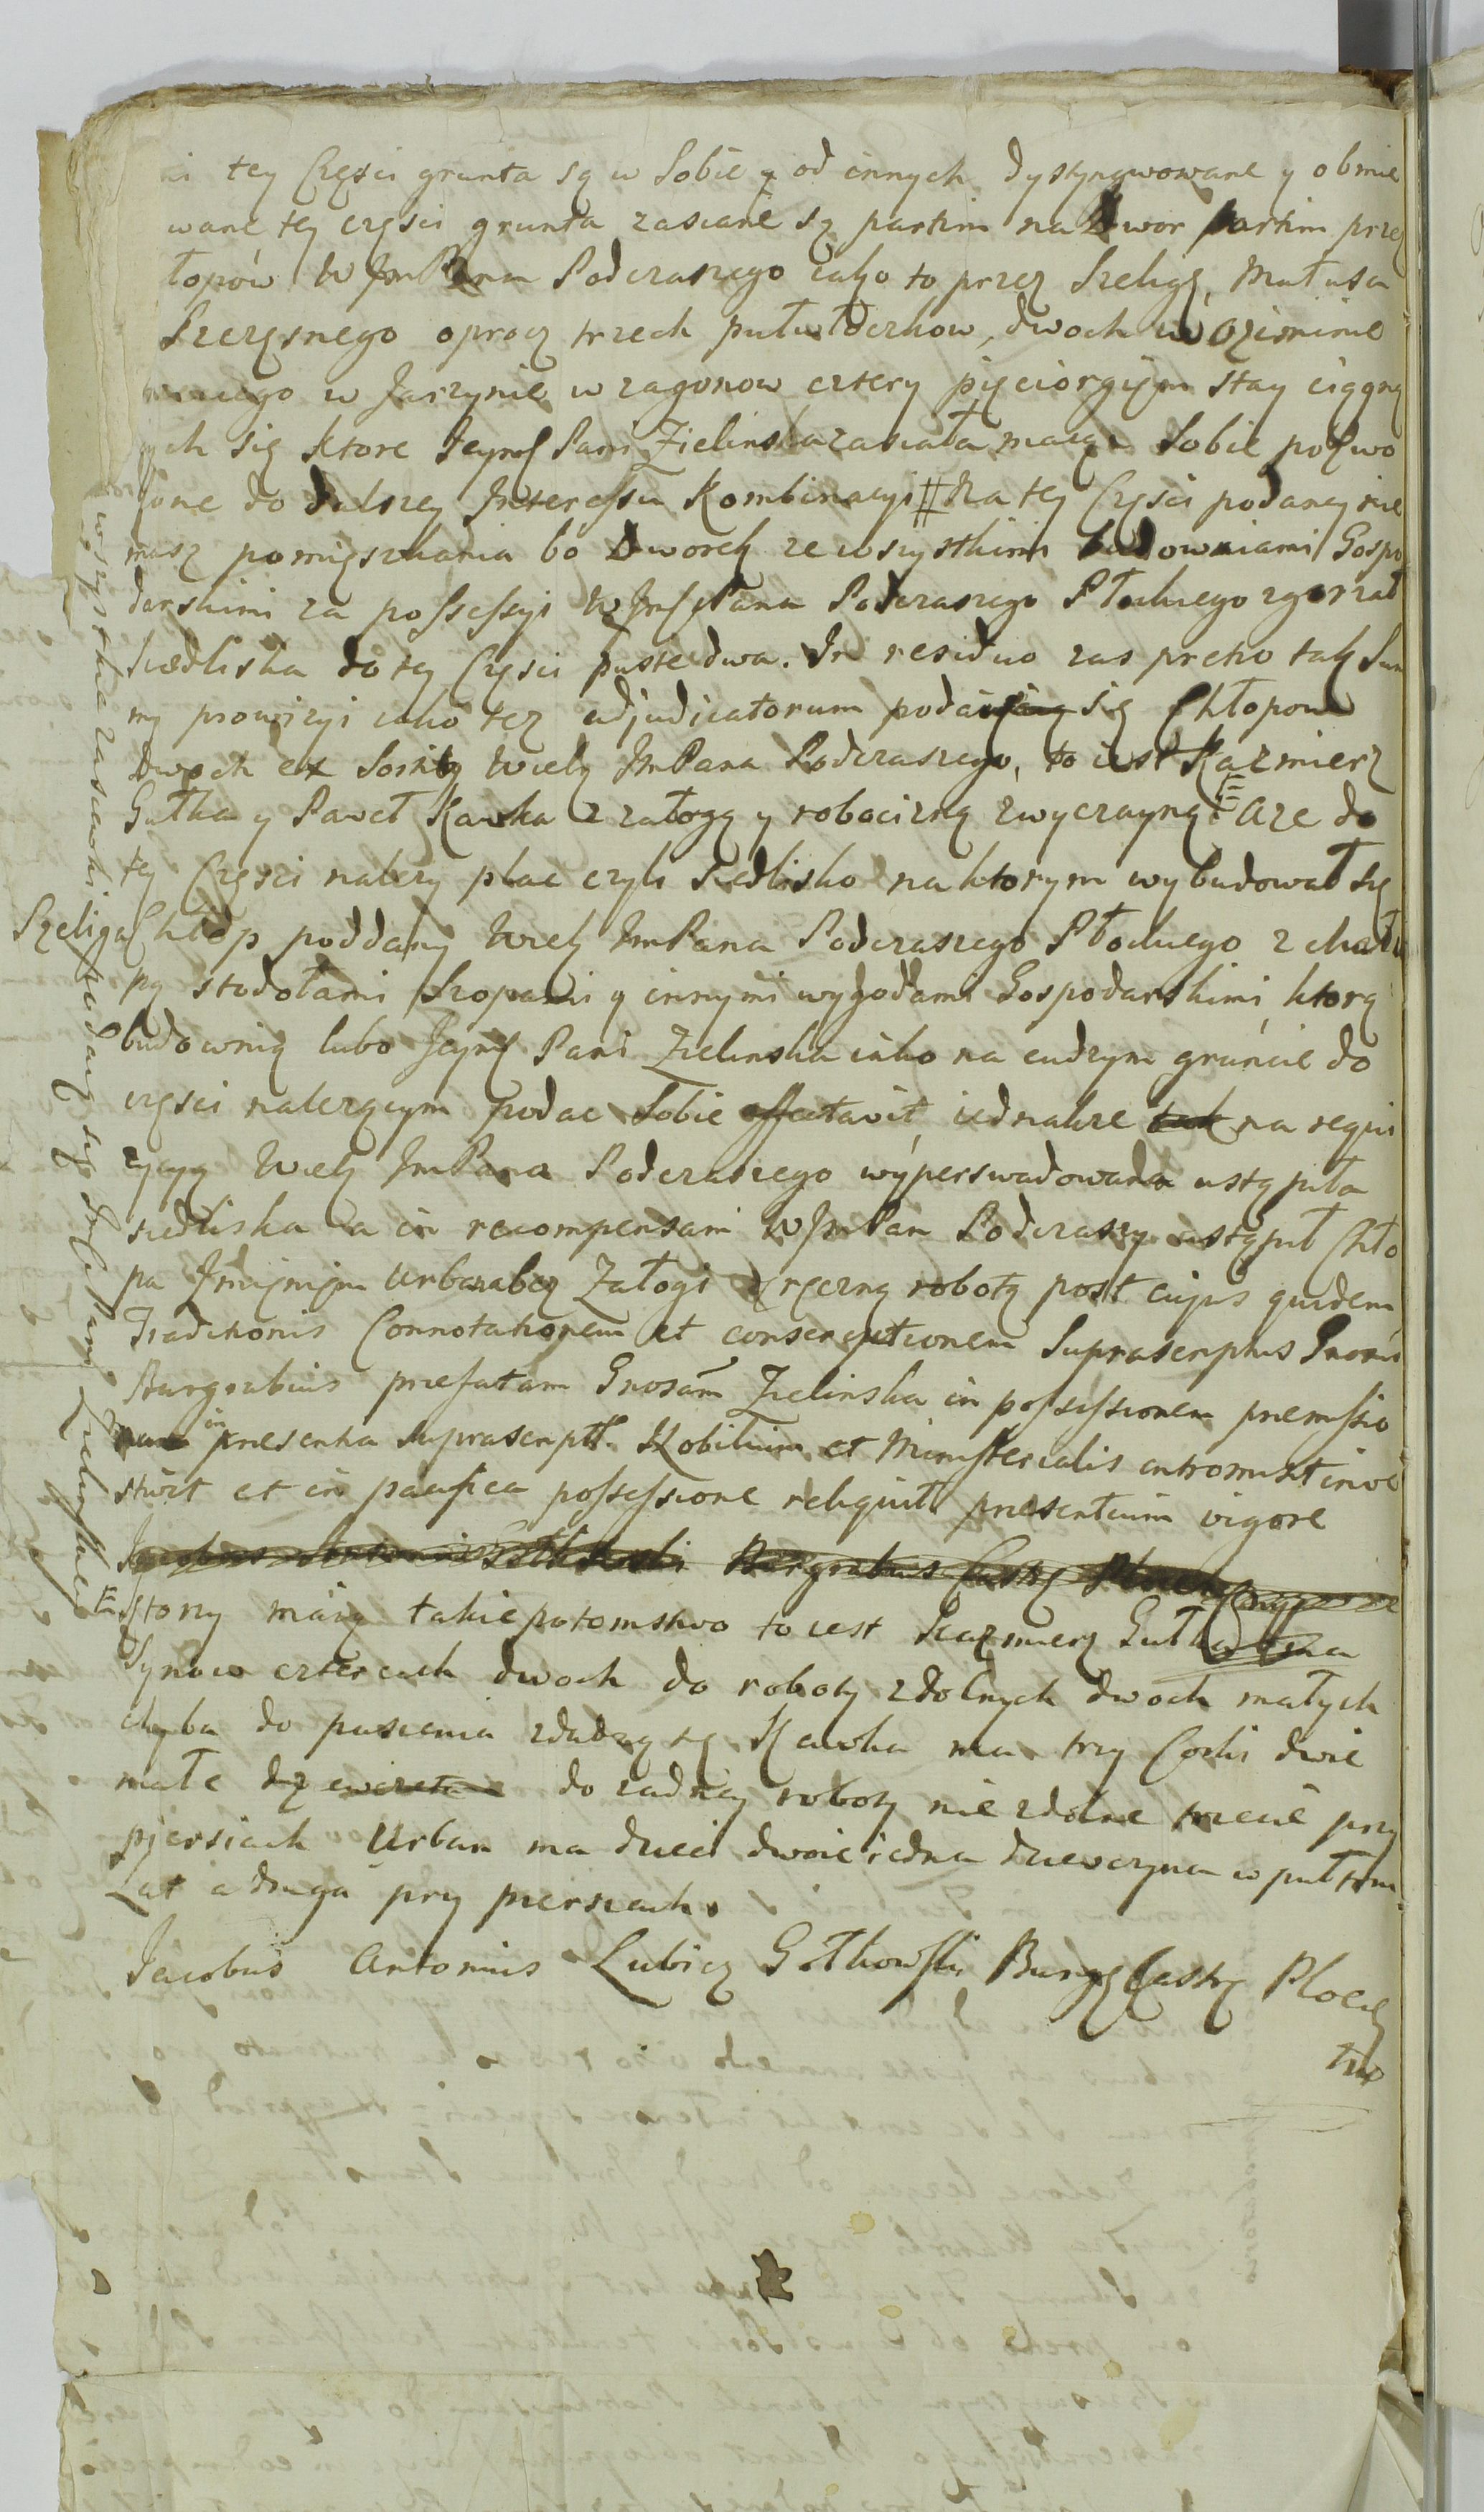 ni tey Części grunta są w Sobie y od innych dystyngwowane y obmie
wane tey części grunta zasiane są partim na Dwor partim przez
łopów W JmPana Podczaszego iako to przez Szeligę, Matusa
Szczęsnego oprocz trzech pułwłoczkow, dwoch w Oziminie
w Jarzynie w zagonow cztery pięciorgiem stay ciągną
ych się ktore Jeymć Pani Zielinska zasiała maiąc Sobie pozwo
lone do dalszey Interessu Kombinacyi # Na tey Części podaney nie
masz pomięszkania bo Dworek ze wszystkimi budowniami Gospo
darskimi za possessyi W Jmć Pana Podczaszego Płockiego zgorzał
Siedliska do tey Części puste dwa. In residuo zas pretio tak Sum
my prowizyi iako tez adjudicatorum podaią się Chłopow
dwoch ex Sortty Wielg JmPana Podczaszego, to iest Kazmierz
Gutka y Paweł Kawka z załogą y robocizną zwyczayną E Aze do
tey Części nalezy plac czyli siedlisko na ktorym wybudował się
Szeliga Chłop poddany Wielg JmPana Podczaszego Płockiego z chału
pą stodołami Szopami y innymi wygodami Gospodarskimi, ktorą
budownią lubo Jeymć Pani Zielinska iako na cudzym gruncie do
części nalezącym podac Sobie affectavit, iednakze tak na requi
zycyą Wielg JmPana Podczaszego wyperswadowana ustąpiła
siedliska a in recompensam W JmPan Podczaszy ustąpił Chło
pa Jmieniem Urbana bez Załogi z ręczną robotą post cujus quidem
Traditionis Connotationem et conscriptionem Suprascriptus Gnosus
Burgrabius prefatam Gnosam Zielinska in possessionem premissio
rum in presentia suprascriptt. Nobilium et Ministerialis intromisit inve
stivit et in pacifica possessione reliquit presentium vigore
Jacobus Antonius Gołkowski Burgrabius Castrg Plocen
E Ktorzy maią takie potomstwo to iest Kazmierz Gutka ma
Synow czterech dwoch do roboty zdolnych dwoch małych
chyba do pasienia zdadzą się Kawka ma trzy Corki dwie
małe dziewczęta do zadney roboty nie zdolne trzecie przy
pjersiach Urban ma dzieci dwoie iedna dziewczyna w puł trze
Lat a druga przy piersiach.
Jacobus Antonius Lubicz Gołkowski Burgg Castrg Plocen
mp
# wszystkie zasiewki podaią się JmPani Zielinskiey